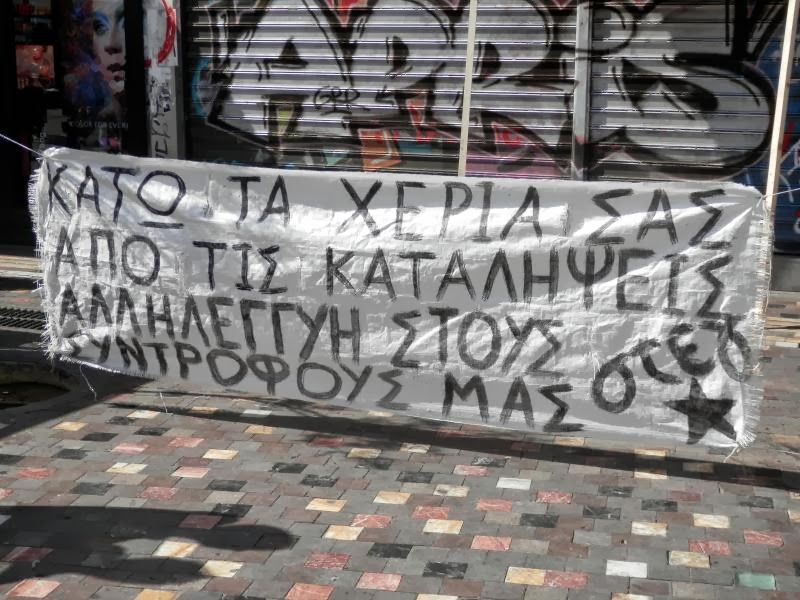 ΚΑΤΩ ΤΑ ΧΕΡΙΑ ΣΑΣ
ΑΠΟ ΤΙΣ ΚΑΤΑΛΗΨΕΙΣ
ΑΛΛΗΛΕΓΓΥΗ ΣΤΟΥΣ
ΣΥΝΤΡΟΦΟΥΣ ΜΑΣ